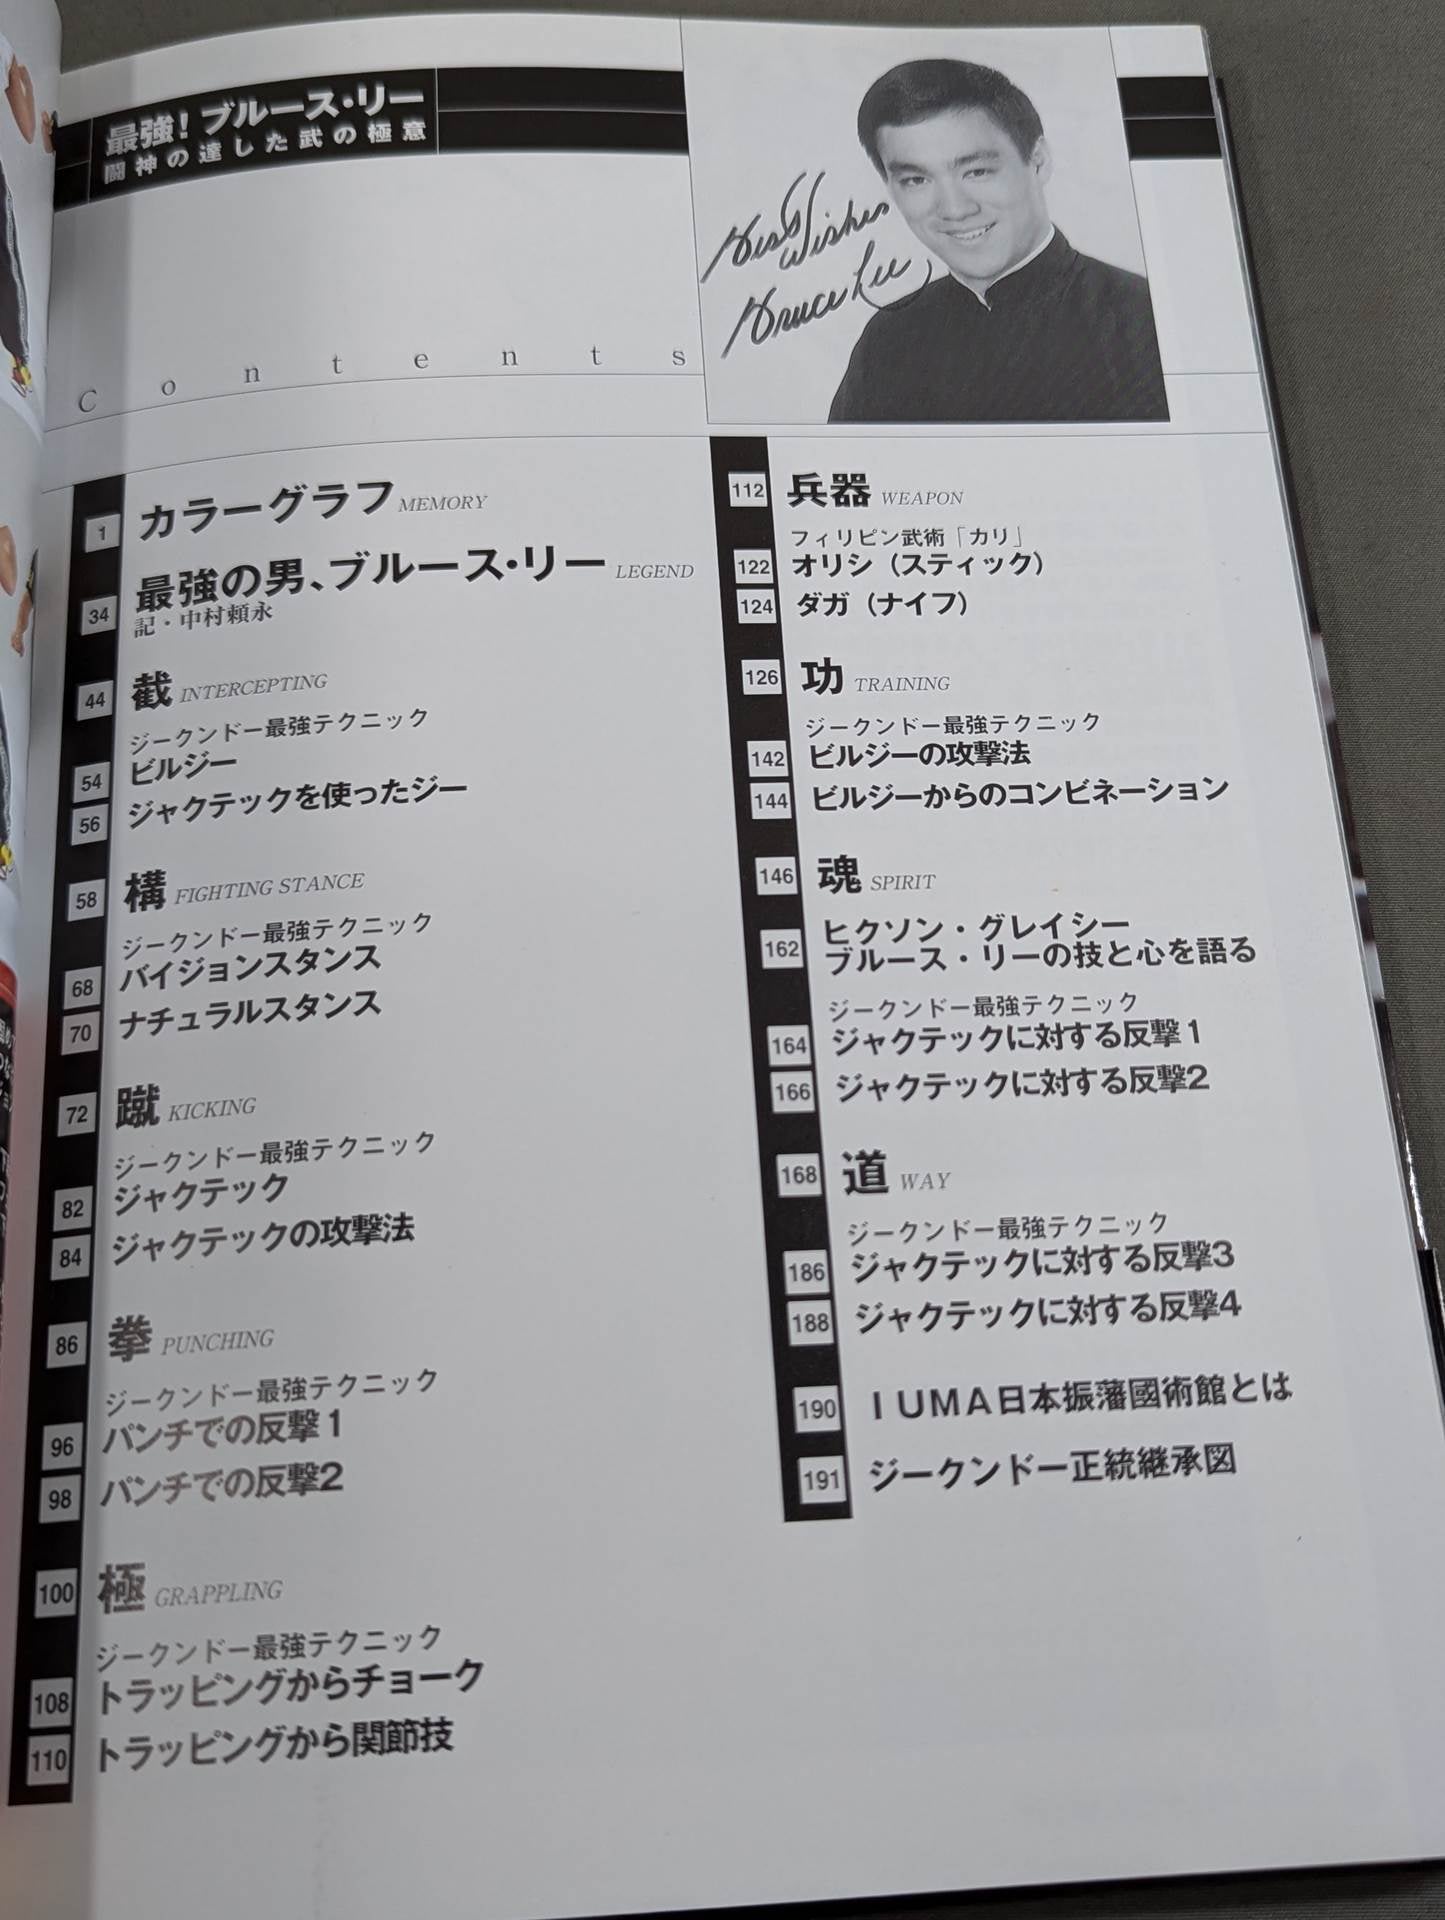 最強!ブルース・リー
闘神の達した武の極意
Best Wishes
Bruce Lee
Contents
1 カラーグラフ MEMORY
34 最強の男、ブルース・リー LEGEND
記・中村頼永
44 截 INTERCEPTING
ジークンドー最強テクニック
54 ビルジー
56 ジャクテックを使ったジー
58 構 FIGHTING STANCE
ジークンドー最強テクニック
68 バイジョンスタンス
70 ナチュラルスタンス
72 蹴 KICKING
ジークンドー最強テクニック
82 ジャクテック
84 ジャクテックの攻撃法
86 拳 PUNCHING
ジークンドー最強テクニック
96 パンチでの反撃1
98 パンチでの反撃2
100 極 GRAPPLING
ジークンドー最強テクニック
108 トラッピングからチョーク
110 トラッピングから関節技
112 兵器 WEAPON
フィリピン武術「カリ」
122 オリシ(スティック)
124 ダガ(ナイフ)
126 功 TRAINING
ジークンドー最強テクニック
142 ビルジーの攻撃法
144 ビルジーからのコンビネーション
146 魂 SPIRIT
162 ヒクソン・グレイシー
ブルース・リーの技と心を語る
ジークンドー最強テクニック
164 ジャクテックに対する反撃1
166 ジャクテックに対する反撃2
168 道 WAY
ジークンドー最強テクニック
186 ジャクテックに対する反撃3
188 ジャクテックに対する反撃4
190 IUMA日本振藩國術館とは
191 ジークンドー正統継承図